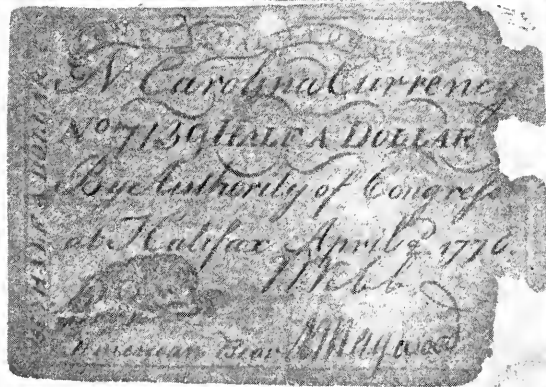 HALF A DOLLAR
N Carolina Currency
No 7139 HALF A DOLLAR
By Authority of Congress
at Halifax April 2 1776
Webb
American Bear